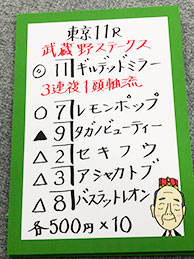 東京11R
武蔵野ステークス
◎ 11 ギルデッドミラー
3連複1頭軸流
○ 7 レモンポップ
▲ 9 タガノビューティー
△ 2 セキフウ
△ 3 アシャカトブ
△ 8 バスラットレオン
各500円×10